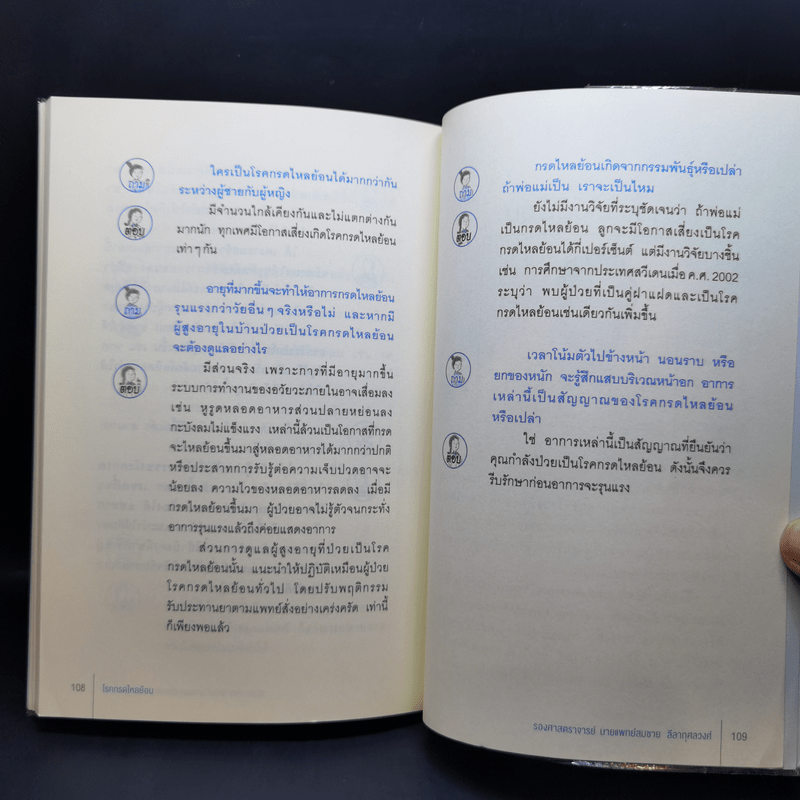 ถาม
ใครเป็นโรคกรดไหลย้อนได้มากกว่ากัน
ระหว่างผู้ชายกับผู้หญิง
ตอบ
มีจำนวนใกล้เคียงกันและไม่แตกต่างกัน
มากนัก ทุกเพศมีโอกาสเสี่ยงเกิดโรคกรดไหลย้อน
เท่าๆ กัน
ถาม
อายุที่มากขึ้นจะทำให้อาการกรดไหลย้อน
รุนแรงกว่าวัยอื่นๆ จริงหรือไม่ และหากมี
ผู้สูงอายุในบ้านป่วยเป็นโรคกรดไหลย้อน
จะต้องดูแลอย่างไร
ตอบ
มีส่วนจริง เพราะการที่มีอายุมากขึ้น
ระบบการทำงานของอวัยวะภายในอาจเสื่อมลง
เช่น หูรูดหลอดอาหารส่วนปลายหย่อนลง
กะบังลมไม่แข็งแรง เหล่านี้ล้วนเป็นโอกาสที่กรด
จะไหลย้อนขึ้นมาสู่หลอดอาหารได้มากกว่าปกติ
หรือประสาทการรับรู้ต่อความเจ็บปวดอาจจะ
น้อยลง ความไวของหลอดอาหารลดลง เมื่อมี
กรดไหลย้อนขึ้นมา ผู้ป่วยอาจไม่รู้ตัวจนกระทั่ง
อาการรุนแรงแล้วถึงค่อยแสดงอาการ
ส่วนการดูแลผู้สูงอายุที่ป่วยเป็นโรค
กรดไหลย้อนนั้น แนะนำให้ปฏิบัติเหมือนผู้ป่วย
โรคกรดไหลย้อนทั่วไป โดยปรับพฤติกรรม
รับประทานยาตามแพทย์สั่งอย่างเคร่งครัด เท่านี้
ก็เพียงพอแล้ว
108 โรคกรดไหลย้อน
ถาม
กรดไหลย้อนเกิดจากกรรมพันธุ์หรือเปล่า
ถ้าพ่อแม่เป็น เราจะเป็นไหม
ตอบ
ยังไม่มีงานวิจัยที่ระบุชัดเจนว่า ถ้าพ่อแม่
เป็นกรดไหลย้อน ลูกจะมีโอกาสเสี่ยงเป็นโรค
กรดไหลย้อนได้กี่เปอร์เซ็นต์ แต่มีงานวิจัยบางชิ้น
เช่น การศึกษาจากประเทศสวีเดนเมื่อ ค.ศ. 2002
ระบุว่า พบผู้ป่วยที่เป็นคู่ฝาแฝดและเป็นโรค
กรดไหลย้อนเช่นเดียวกันเพิ่มขึ้น
ถาม
เวลาโน้มตัวไปข้างหน้า นอนราบ หรือ
ยกของหนัก จะรู้สึกแสบบริเวณหน้าอก อาการ
เหล่านี้เป็นสัญญาณของโรคกรดไหลย้อน
หรือเปล่า
ตอบ
ใช่ อาการเหล่านี้เป็นสัญญาณที่ยืนยันว่า
คุณกำลังป่วยเป็นโรคกรดไหลย้อน ดังนั้นจึงควร
รีบรักษาก่อนอาการจะรุนแรง
รองศาสตราจารย์ นายแพทย์สมชาย ลีลากุศลวงศ์ 109